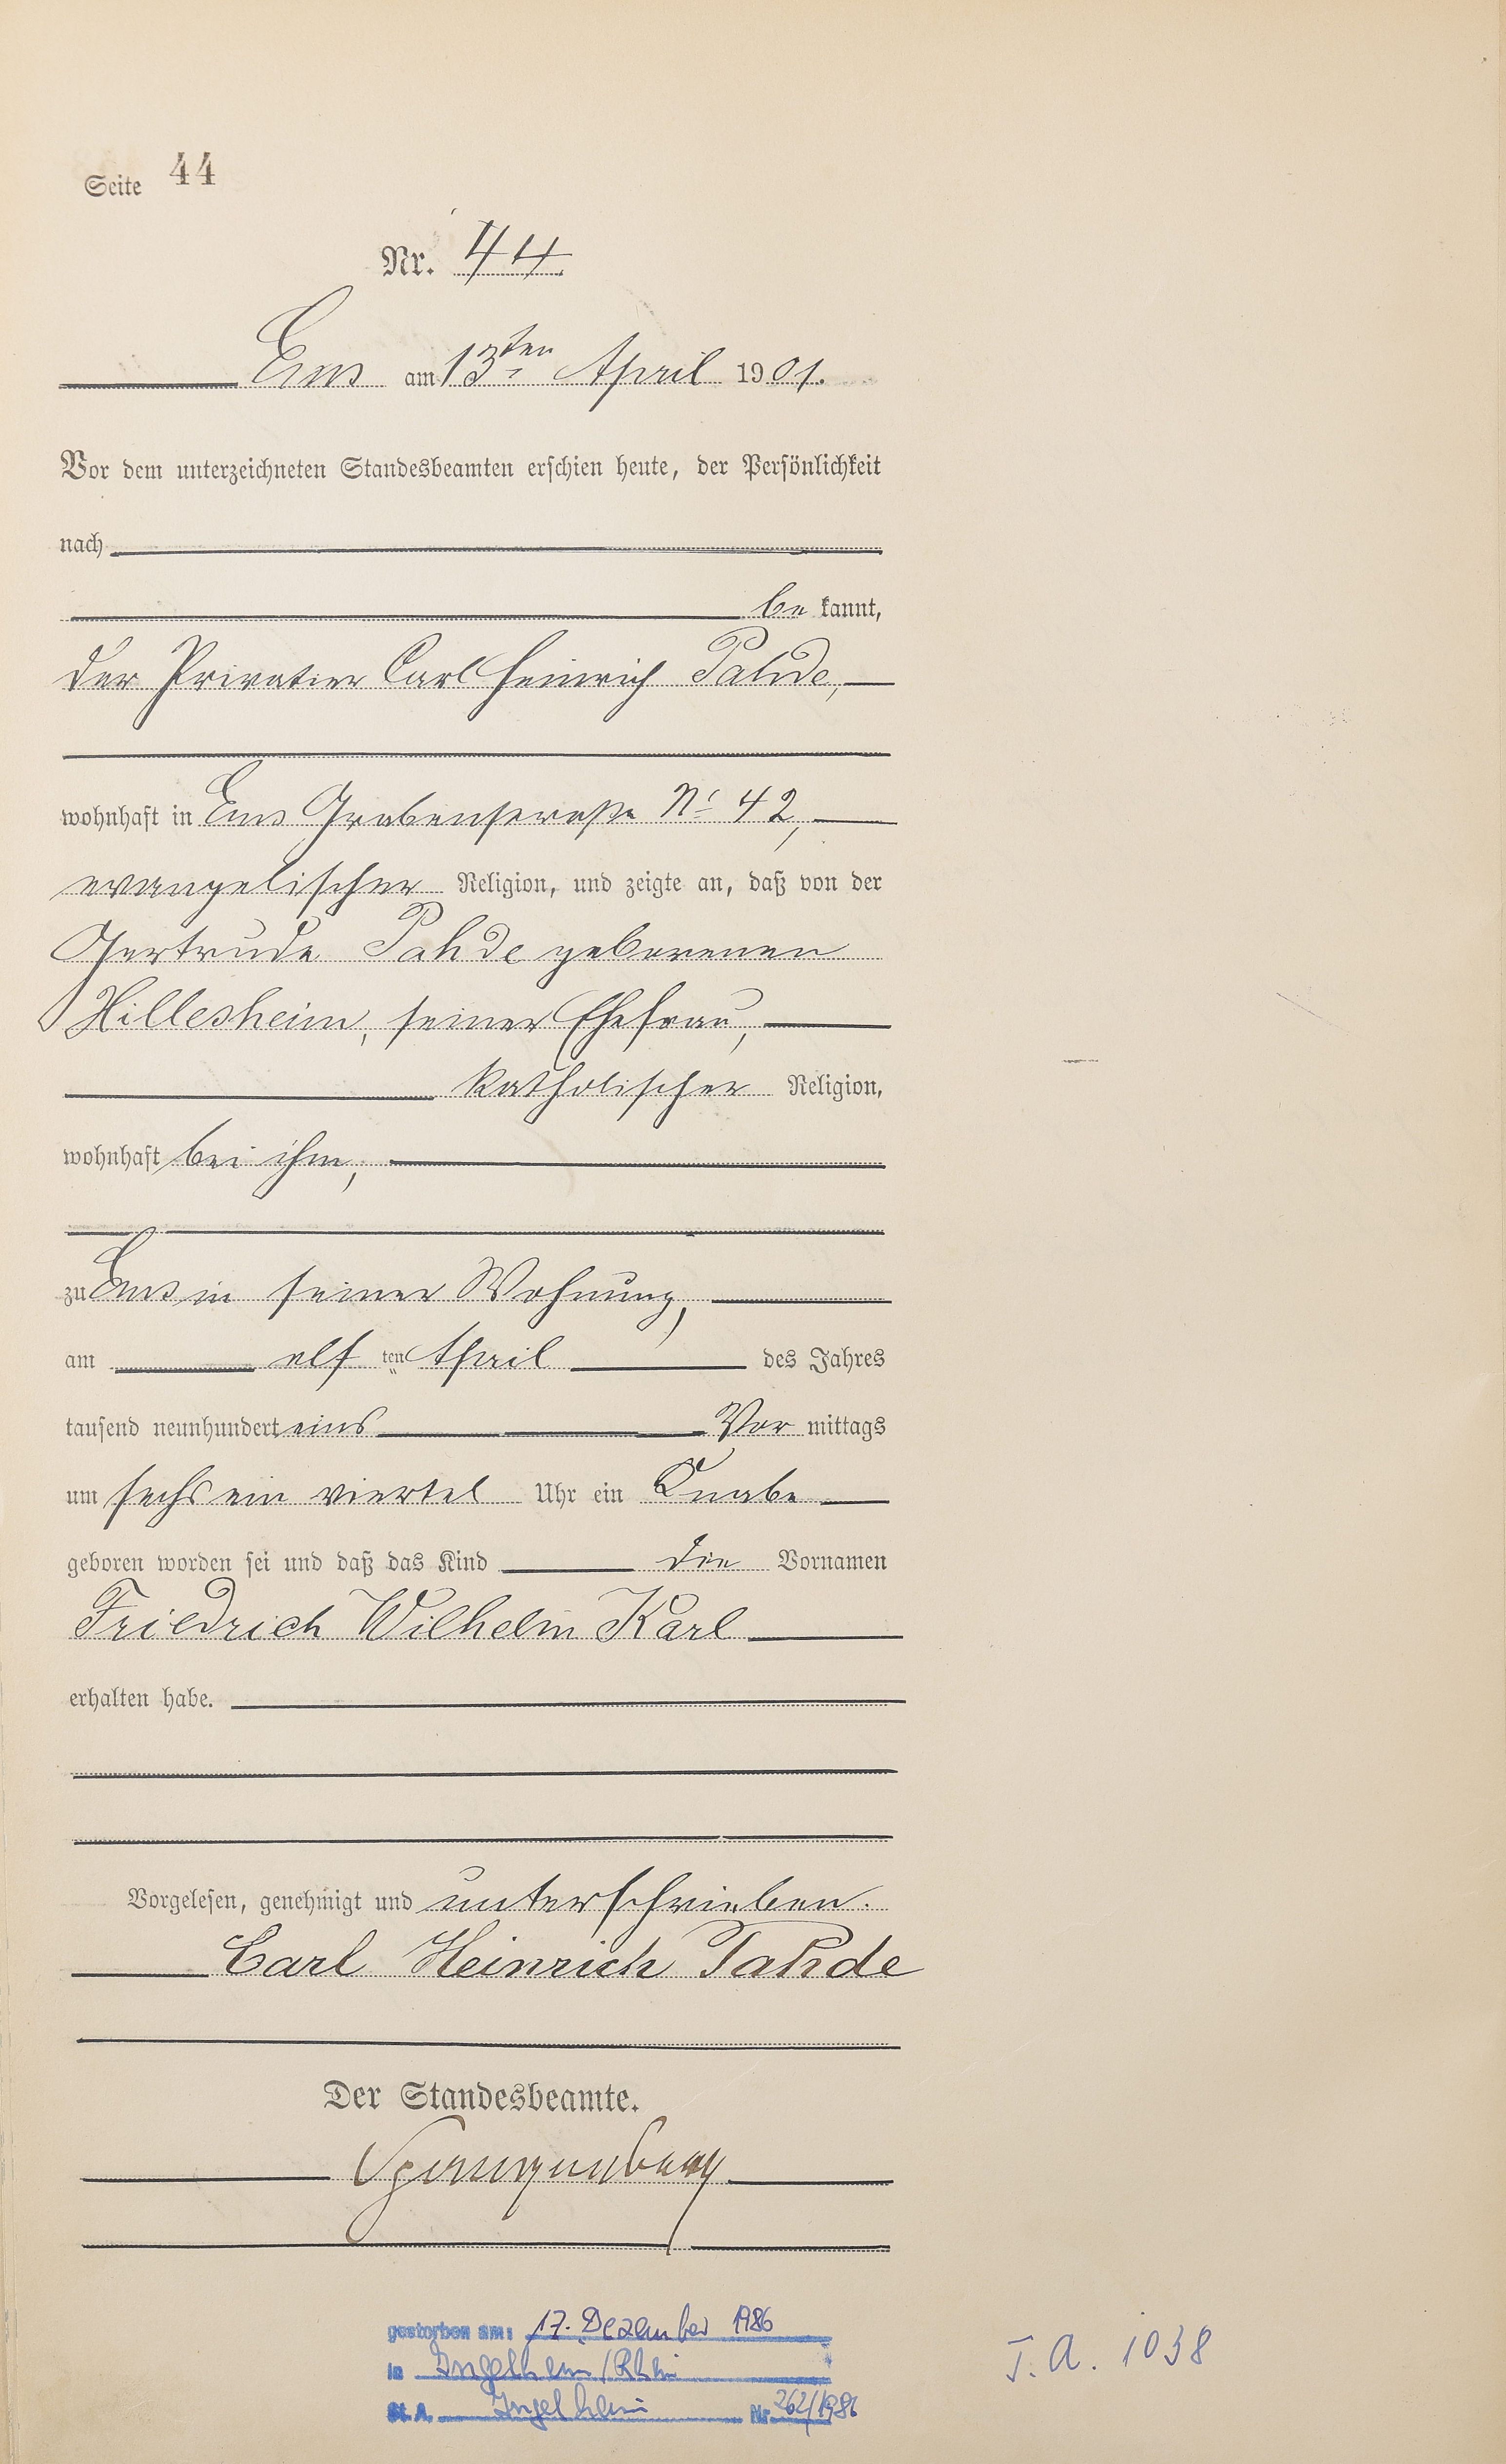 Seite 44
Nr. 44.
Ems am 13ten April 1901.
Vor dem unterzeichneten Standesbeamten erschien heute, der Persönlichkeit
nach
be kannt,
der Privatier Carl Heinrich Pahde,
wohnhaft in Ems Grabenstraße No 42,
evangelischer Religion, und zeigte an, daß von der
Gertrude Pahde geborenen
Hillesheim, seiner Ehefrau,
katholischer Religion,
wohnhaft bei ihm,
zu Ems in seiner Wohnung,
am elf ten April des Jahres
tausend neunhundert eins Vor mittags
um sechs ein viertel Uhr ein Knabe
geboren worden sei und daß das Kind die Vornamen
Friedrich Wilhelm Karl
erhalten habe.
Vorgelesen, genehmigt und unterschrieben.
Carl Heinrich Pahde
Der Standesbeamte.
gestorben am: 17. Dezember 1986
in Ingelheim/Rhein
St. A. Ingelheim Nr. 262/1986
T.A. 1038